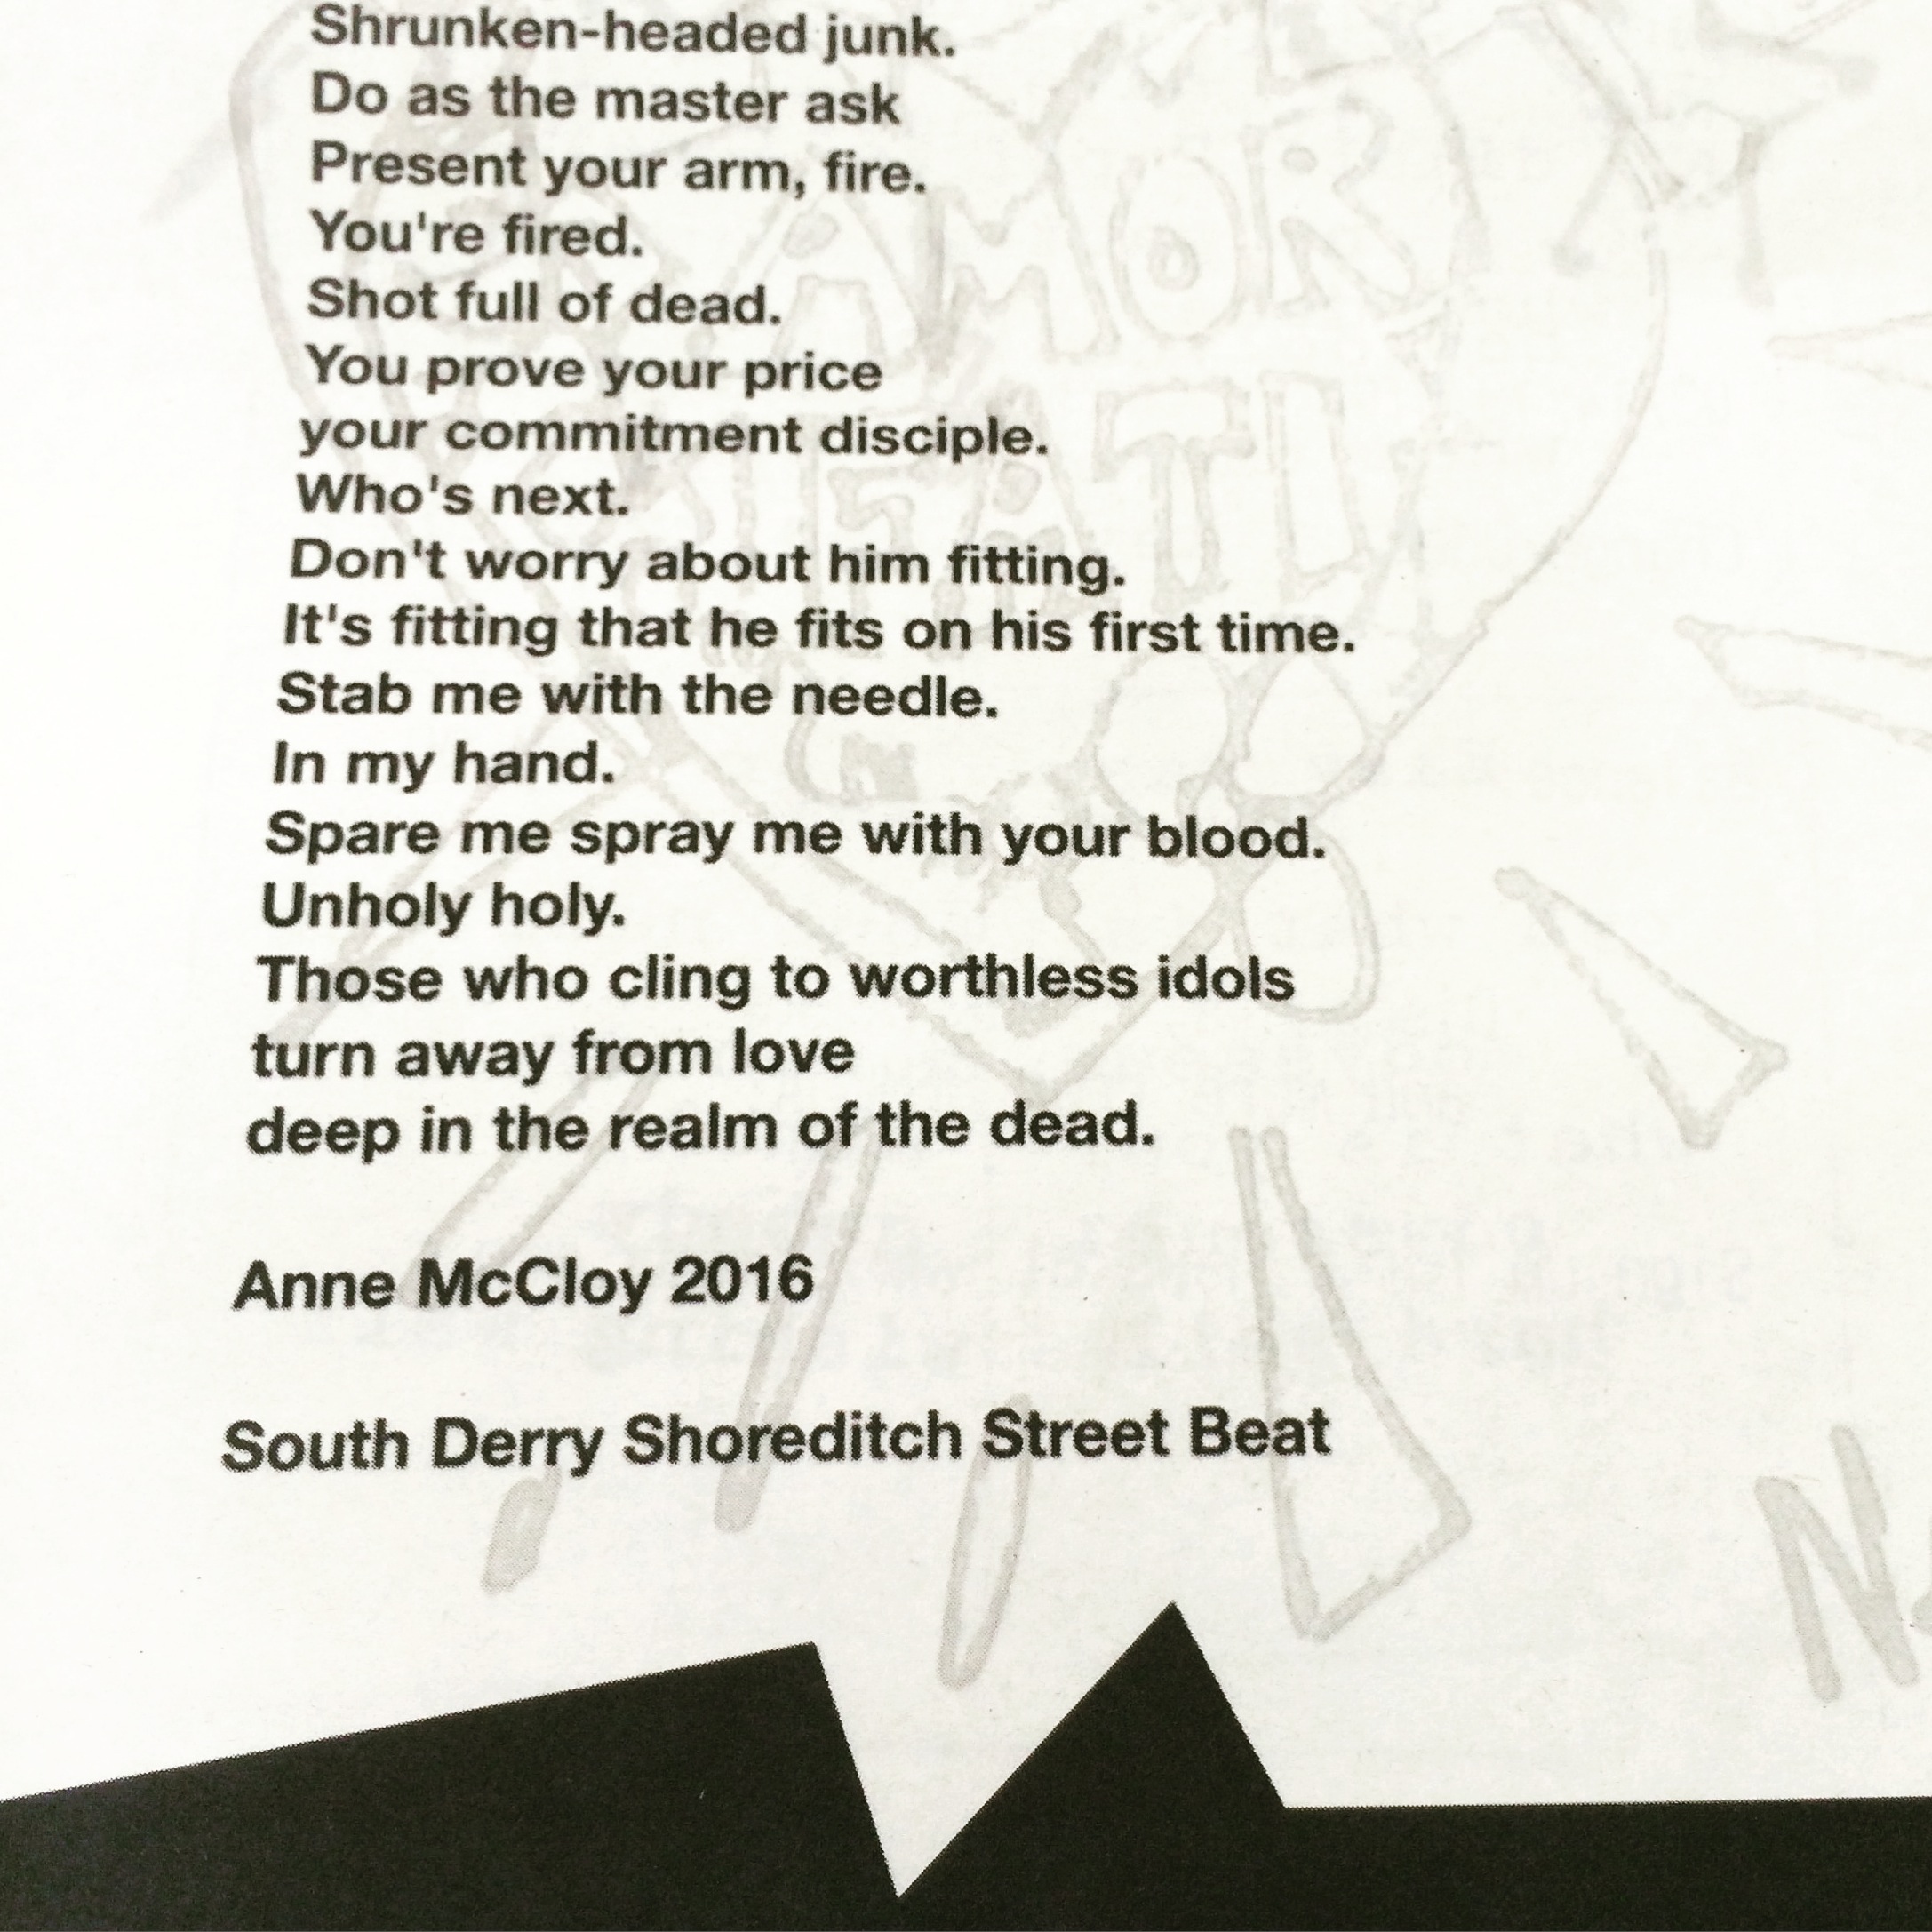 Shrunken-headed junk.
Do as the master ask
Present your arm, fire.
You're fired.
Shot full of dead.
You prove your price
your commitment disciple.
Who's next.
Don't worry about him fitting.
It's fitting that he fits on his first time.
Stab me with the needle.
In my hand.
Spare me spray me with your blood.
Unholy holy.
Those who cling to worthless idols
turn away from love
deep in the realm of the dead.
Anne McCloy 2016
South Derry Shoreditch Street Beat
AMOR
FATI